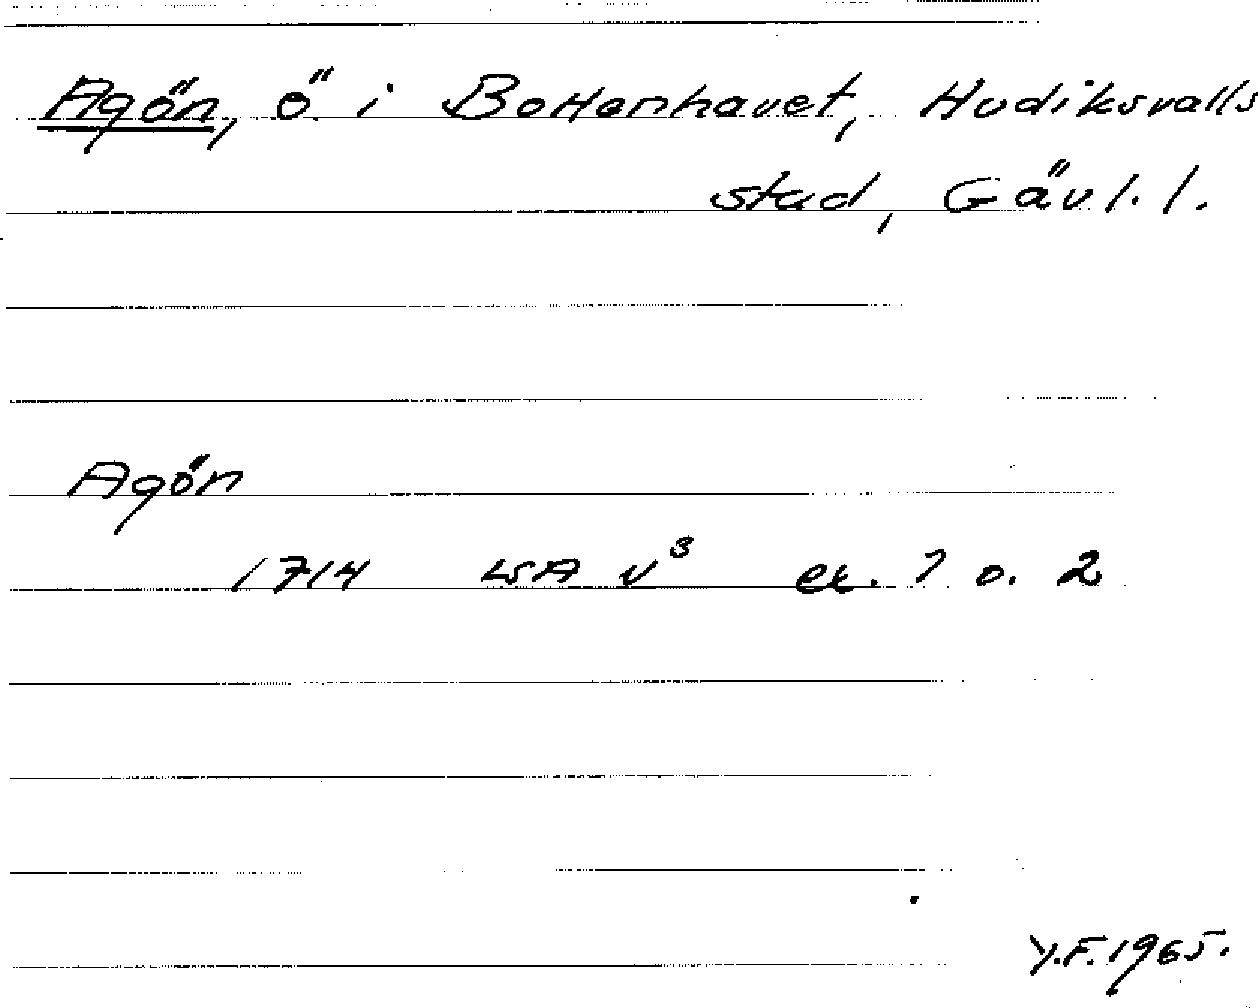 Agön, ö i Bottenhavet, Hudiksvalls
stad, Gävl. l.
Agön
1714 LSA v³ ex. 1 o. 2
Y.F. 1965.